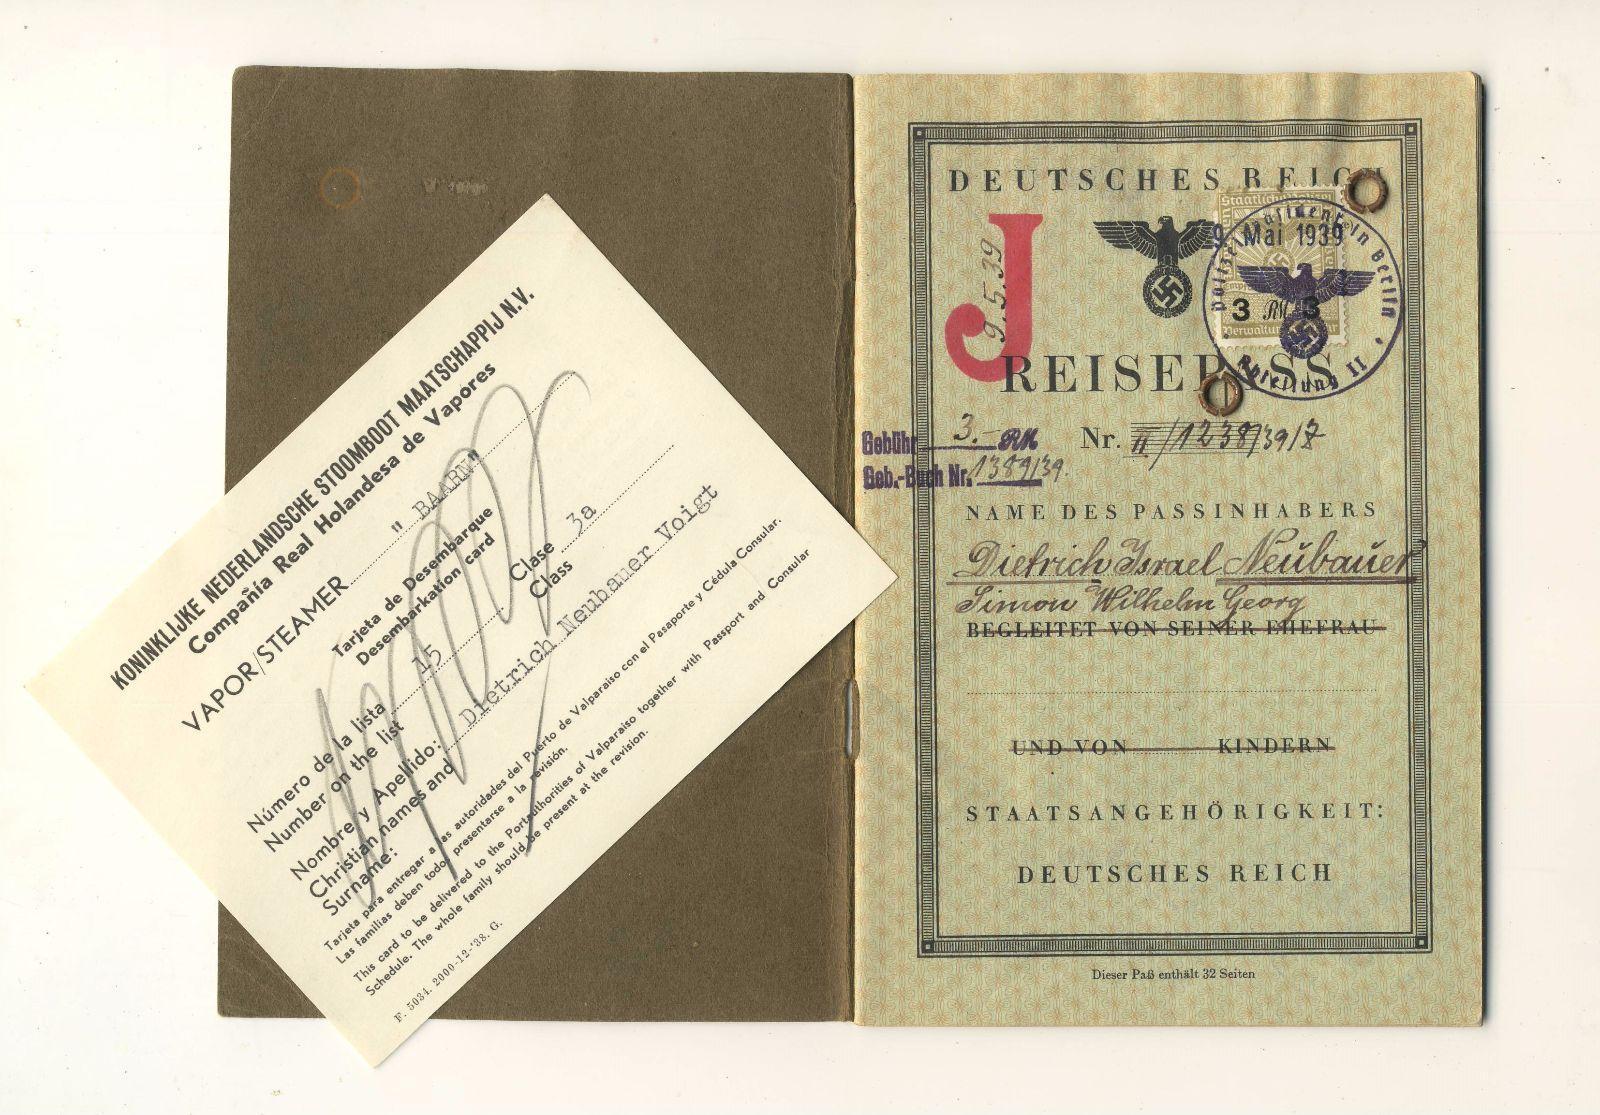 KONINKLIJKE NEDERLANDSCHE STOOMBOOT MAATSCHAPPIJ N.V.
Compañía Real Holandesa de Vapores
VAPOR/STEAMER " BAARN"
Tarjeta de Desembarque
Desembarkation card
Número de la lista 15 Clase 3a
Number on the list Class
Nombre y Apellido: Dietrich Neubauer Voigt
Christian names and
Surname:
Tarjeta para entregar a las autoridades del Puerto de Valparaiso con el Pasaporte y Cédula Consular.
Las familias deben todos presentarse a la revisión.
This card to be delivered to the Portauthorities of Valparaiso together with Passport and Consular
Schedule. The whole family should be present at the revision.
F. 5034. 2000-12-'38. G.
DEUTSCHES REICH
J
9.5.39
Staatliche Polizei
Polizeipräsident in Berlin
9. Mai 1939
3 RM 3
Abteilung II
REISEPASS
Gebühr 3.- RM
Nr. II/1238/39/7
Geb.-Buch Nr. 1389/39.
NAME DES PASSINHABERS
Dietrich Israel Neubauer
Simon Wilhelm Georg
BEGLEITET VON SEINER EHEFRAU
UND VON KINDERN
STAATSANGEHÖRIGKEIT:
DEUTSCHES REICH
Dieser Paß enthält 32 Seiten